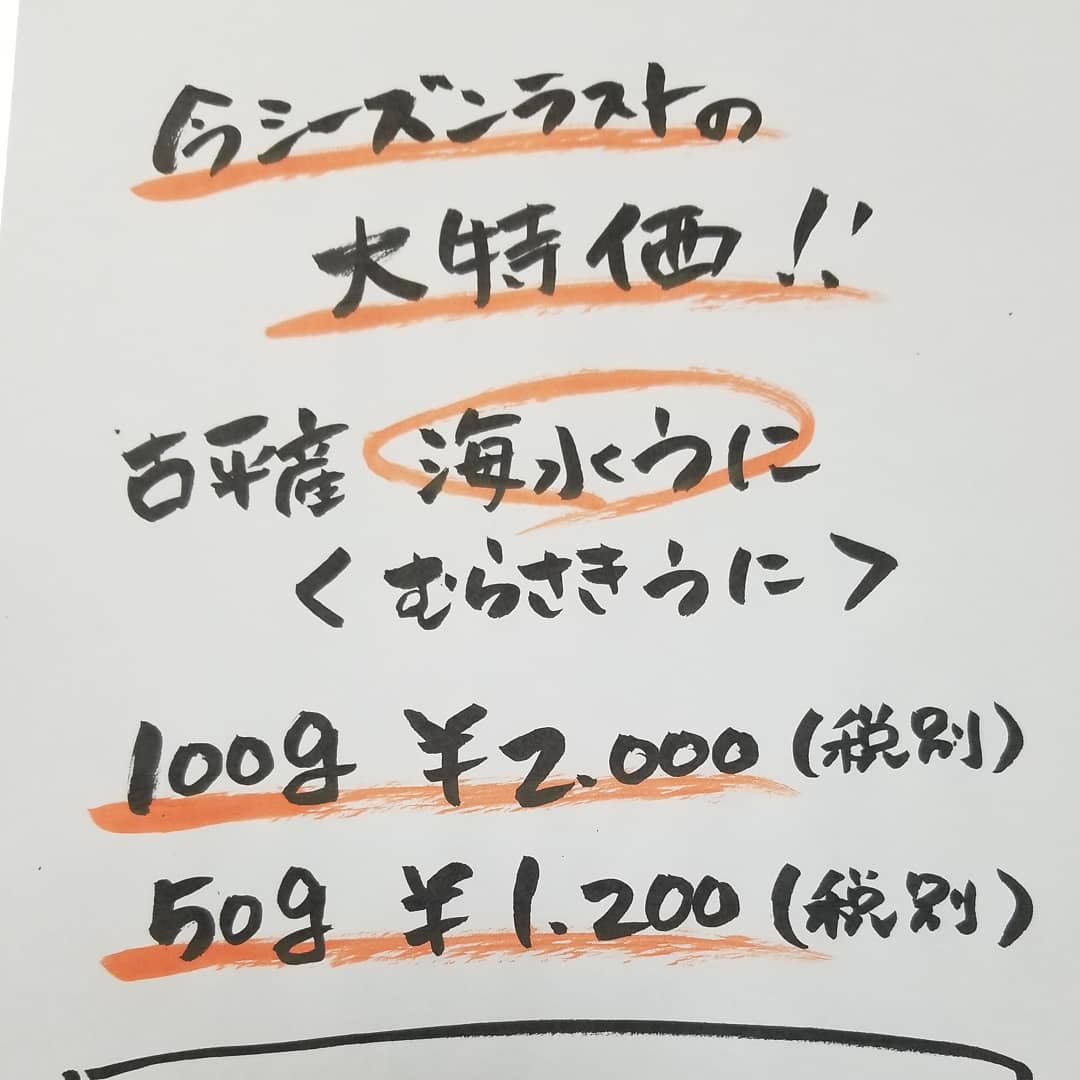 今シーズンラストの
大特価!!
古平産 海水うに
<むらさきうに>
100g ¥2.000(税別)
50g ¥1.200(税別)